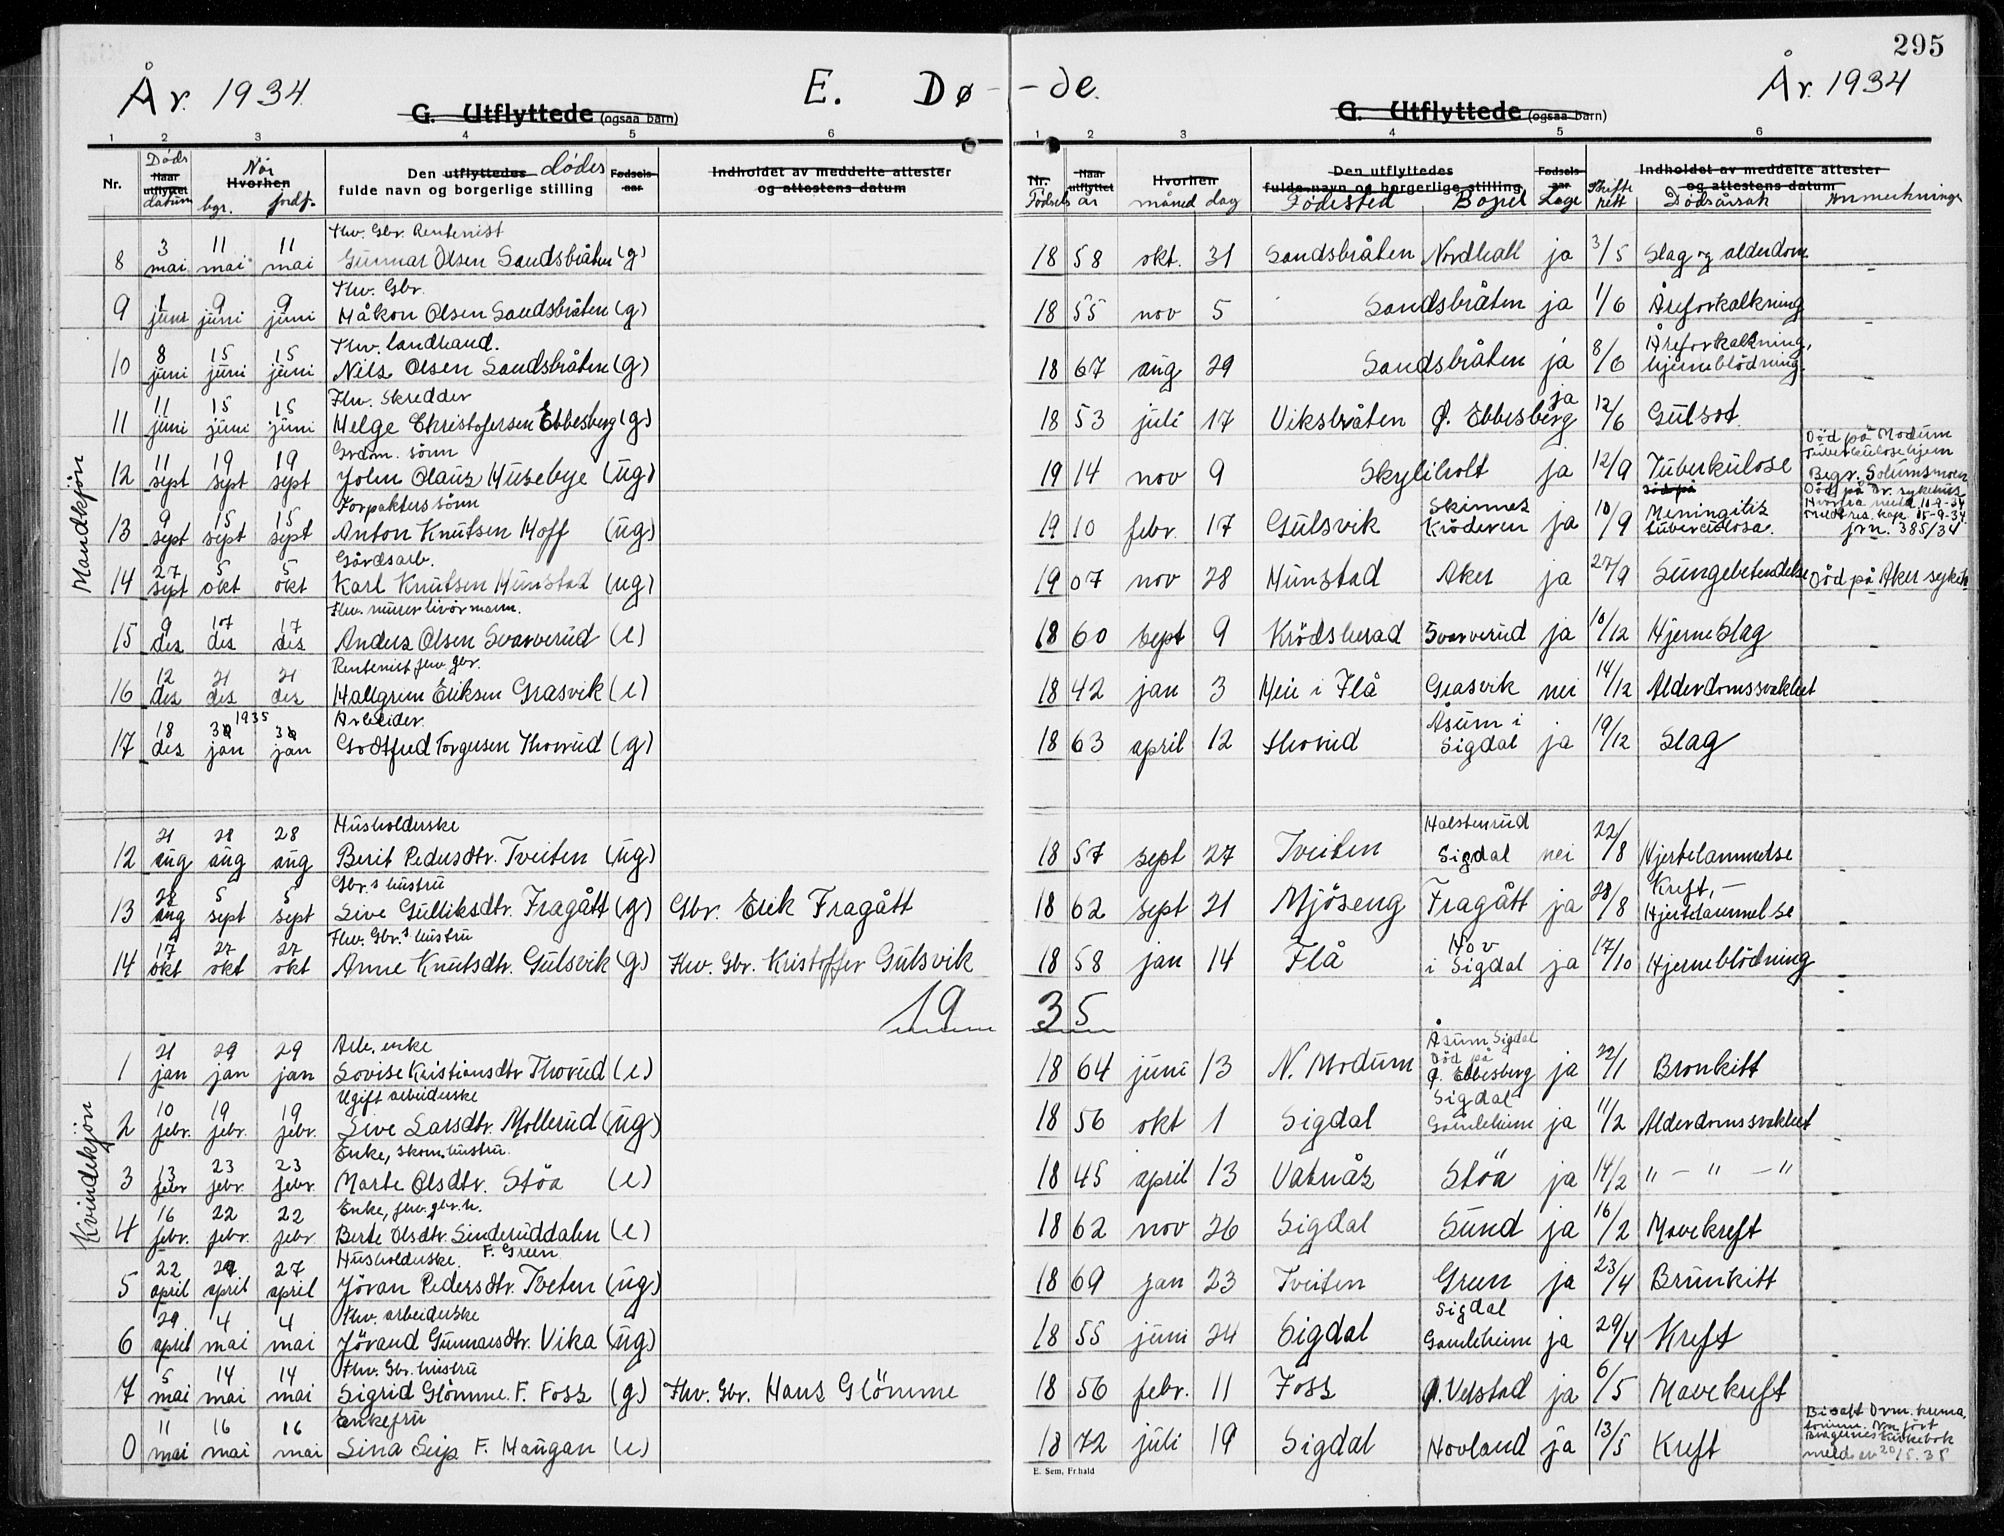 295
År. 1934 E. Dø- -de. År. 1934
G. Utflyttede (ogsaa barn) G. Utflyttede (ogsaa barn)
1 2 3 4 5 6 1 2 3 4 5 6
Nr. Døds Naar utflyttet datum Når Hvorhen bgr. jordf. Den utflyttedes dødes fulde navn og borgerlige stilling Fødsels-aar Indholdet av meddelte attester og attestens datum
Nr. Fødsels Naar utflyttet år Hvorhen måned dag Den utflyttedes fulde navn og borgerlige stilling Fødested Bopel Fødsels-aar Læge Skifte rett Indholdet av meddelte attester og attestens datum Dødsårsak Anmerkninger
Mandkjön
Fhv. Gbr. Rentenist
8 3 mai 11 mai 11 mai Gunnar Olsen Sandsbråten (g) 18 58 okt. 31 Sandsbråten Nordhall ja 3/5 Slag og alderdom
Fhv. Gbr.
9 1 juni 9 juni 9 juni Håkon Olsen Sandsbråten (g) 18 55 nov 5 Sandsbråten ja 1/6 Åreforkalkning
Fhv. landhand.
10 8 juni 15 juni 15 juni Nils Olsen Sandsbråten (g) 18 67 aug 29 Sandsbråten ja 8/6 Åreforkalkning, hjerneblödning.
Fhv. Skredder
11 11 juni 15 juni 15 juni Helge Christofersen Ebbesberg (g) 18 53 juli 17 Viksbråten Ø. Ebbesberg ja 12/6 Gulsot
Grdm. sönn
12 11 sept 19 sept 19 sept John Olaus Husebye (ug) 19 14 nov 9 Skyliholt ja 12/9 Tuberkulose Död på Modum Tuberkulosehjem Begr. Solumsmoen
Forpakters sönn
13 9 sept 15 sept 15 sept Anton Knutsen Hoff (ug) 19 10 febr. 17 Gulsvik Skinnes Kröderen ja 10/9 Död på Meningitis tuberculosa. Död på Dr. sykehus Hvorfra meld. 10-9-34 15-9-34 jrn. 385/34
Gårdsarb.
14 27 sept 5 okt 5 okt Karl Knutsen Hunstad (ug) 19 07 nov 28 Hunstad Aker ja 27/9 Lungebetendelse Död på Aker sykeh
Fhv. murer livörmann.
15 9 des 17 des 17 des Anders Olsen Svarverud (e) 18 60 sept 9 Krödsherad Svarverud ja 10/12 Hjerneslag
Rentenist fhv. gbr.
16 12 des 21 des 21 des Hallgrim Eriksen Grasvik (e) 18 42 jan 3 Meie i Flå Grasvik nei 14/12 Alderdomssvakhet
1935 Arbeider.
17 18 des 3 jan 3 jan Godtfred Torgersen Thorud (g) 18 63 april 12 Thorud Åsum i Sigdal ja 19/12 Slag
Husholderske
12 21 aug 28 aug 28 aug Berit Pedersdtr. Tveiten (ug) 18 57 sept 27 Tveiten Halstenrud Sigdal nei 22/8 Hjertelammelse
Gbr.s hustru
13 28 aug 5 sept 5 sept Live Gulliksdtr. Fragått (g) Gbr. Erik Fragått 18 62 sept 21 Mjöseng Fragått ja 28/8 Kreft, – Hjertelammelse
Fhv. Gbr.s hustru
14 17 okt 27 okt 27 okt Anne Knutsdtr. Gulsvik (g) Fhv. Gbr. Kristoffer Gulsvik 18 58 jan 14 Flå Hov i Sigdal ja 17/10 Hjerneblödning
19 35
Kvindekjön
Arb. enke
1 21 jan 29 jan 29 jan Lovise Kristiansdtr Thorud (e) 18 64 juni 13 N. Modum Åsum Sigdal Död på Ø. Ebbesberg ja 22/1 Bronkitt
Ugift arbeiderske
2 10 febr. 19 febr. 19 febr. Live Larsdtr. Mollerud (ug) 18 56 okt 1 Sigdal Sigdal Gamleheim ja 11/2 Alderdomssvakhet
Enke, skom. hustru.
3 13 febr 23 febr. 23 febr. Marte Olsdtr. Stöa (e) 18 45 april 13 Vatnås Stöa ja 14/2 " – " – "
Enke, fhv. gbr. h.
4 16 febr. 22 febr. 22 febr. Berte Olsdtr. Sinderuddalen (e) 18 62 nov 26 Sigdal Sund ja 16/2 Mavekreft
Husholderske. F. Green
5 22 april 27 april 27 april Jöran Pedersdtr. Tveten (ug) 18 69 jan 23 Tveiten Green ja 23/4 Brunkitt
Fhv. arbeiderske
6 29 april 4 mai 4 mai Jörand Gunnarsdtr. Vika (ug) 18 55 juni 24 Sigdal Sigdal Gamleheim ja 29/4 Kreft
Fhv. Gbr. hustru
7 5 mai 14 mai 14 mai Sigrid Glömme F. Foss (g) Fhv. Gbr. Hans Glömme 18 56 febr. 11 Foss Ø. Velstad ja 6/5 Mavekreft
Enkefru
0 11 mai 16 mai 16 mai Lina Seip F. Haugan (e) 18 72 juli 19 Sigdal Hovland ja 13/5 Kreft Bisatt Drm. krematorium. fört Bragernes kirkebok meld. av 20/5. 35
E. Sem, Fr.hald